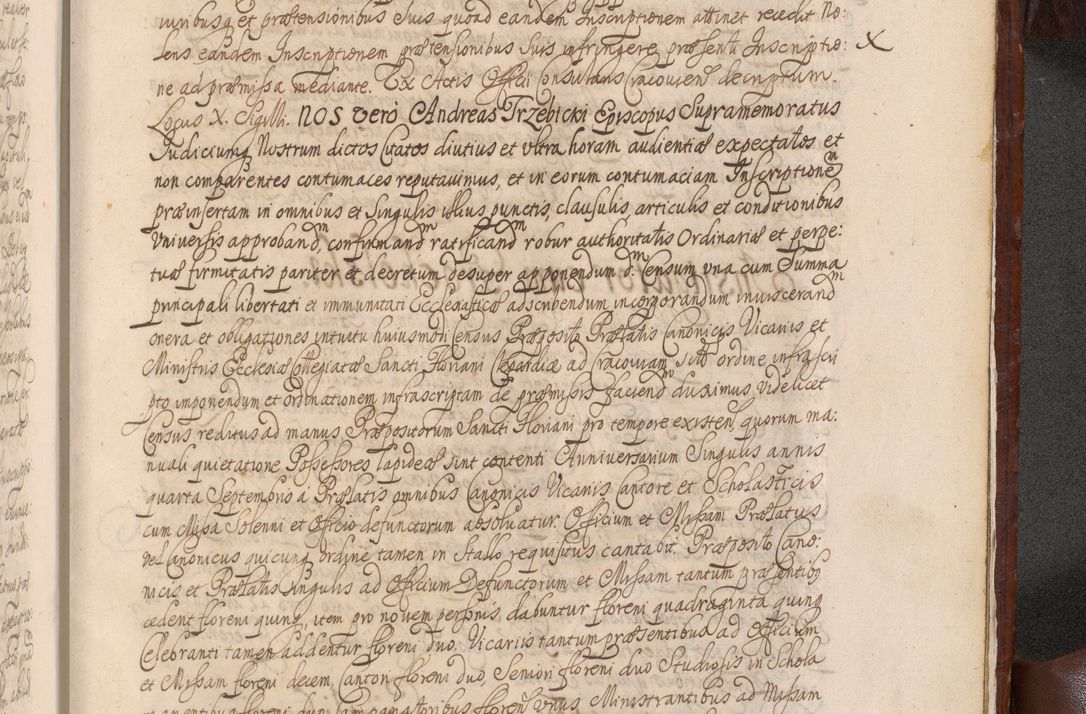 iuribusq et prætensionibus Suis quoad eandem Inscriptionem attinet recedit No:
lens eandem Inscriptionem prætensionibus Suis infringere, præsenti Inscriptio: X
ne ad præmissa mediante. Ex Actis Officii Consularis Cracovien decriptum.
Locus X. Sigilli. NOS vero Andreas Trzebicki Episcopus Supramemoratus
Iudiciumq Nostrum dictos Citatos diutius et ultra horam audientiæ expectatos et
non comparentes contumaces reputavimus, et in eorum contumaciam Inscriptionem
præinsertam in omnibus et Singulis illius punctis, clausulis, articulis et conditionibus
Universis approbandm, confirmandm ratificandm robur authoritatis Ordinariæ et perpe:
tuæ firmitatis pariter et decretum desuper apponendum d. Censum una cum Summa
principali libertati et immunitati Ecclesiasticæ adscribendum incorporandum inviscerandm
onera et obligationes intuitu huiusmodi Census Præposito Prælatis Canonicis Vicariis et
Ministris Ecclesiæ Collegiatæ Sancti Floriani Clepardiæ ad Cracoviam Sitæ ordine infrascri
pto imponendum et Ordinationem infrascriptam de præmissis faciendm duximus videlicet
Census reditus ad manus Præpositorum Sancti Floriani pro tempore existen, quorum ma:
nuali quietatione Possessores lapideæ sint contenti Anniversarium Singulis annis
quarta Septembris a Prælatis omnibus Canonicis Vicariis Cantore et Scholasticis
cum Missa Solenni et Officio defunctorum absolvatur. Officium et Missam Prælatus
vel Canonicus quicunq ordine tamen in Stallo requisitus cantabit. Præposito Cano:
nicis et Prælatis Singulis ad Officium Defunctorum et Missam tantum præsentibq
cedent floreni quinq, item pro novem personis dabuntur floreni quadraginta quinq
Celebranti tamen addentur floreni duo. Vicariis tantum præsentibus ad Officium
et Missam floreni decem, Cantori floreni duo, Seniori floreni duo Studiosis in Schola
manentibus floreni duo, Campanatoribus floren unus Ministrantibus ad Missam